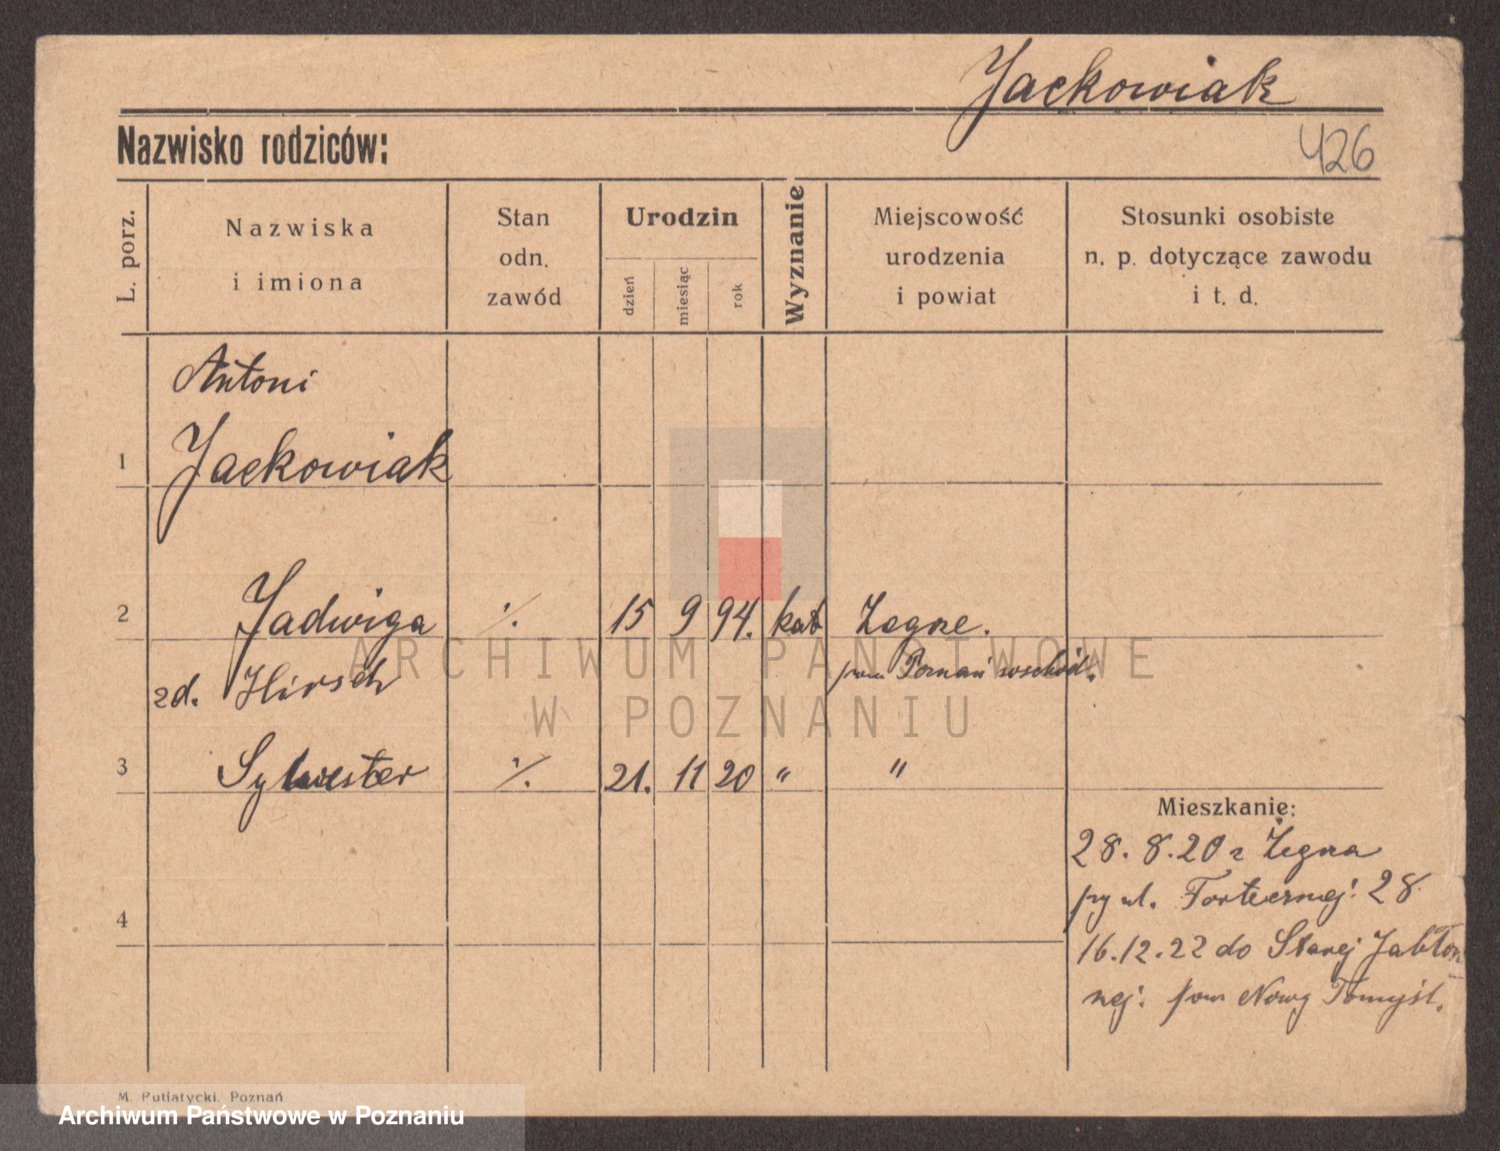 Jackowiak
Nazwisko rodziców:
426
L. porz.
Nazwiska
i imiona
Stan
odn.
zawód
Urodzin
dzień
miesiąc
rok
Wyznanie
Miejscowość
urodzenia
i powiat
Stosunki osobiste
n. p. dotyczące zawodu
i t. d.
Antoni
1 Jackowiak
2 Jadwiga ·/. 15 9 94. kat Zegrze.
zd. Hirsch pow Poznań wschód.
3 Sylwester ·/. 21. 11 20 " "
Mieszkanie:
28. 8. 20 z Zegrza
py ul. Fortecznej: 28
4
16.12.22 do Starej Jabłon
nej: pow Nowy Tomyśl.
ARCHIWUM PAŃSTWOWE
W POZNANIU
M. Putiatycki, Poznań
Archiwum Państwowe w Poznaniu